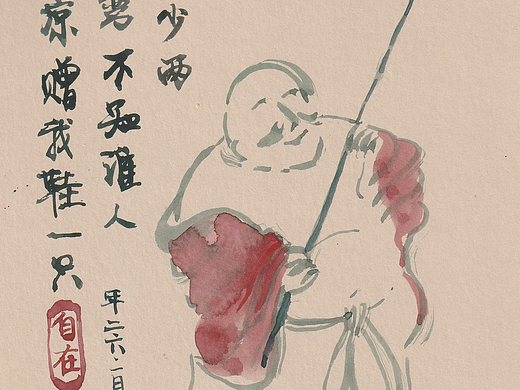 少两
不知谁人
凉赠我鞋一只
年二六.一日
自在